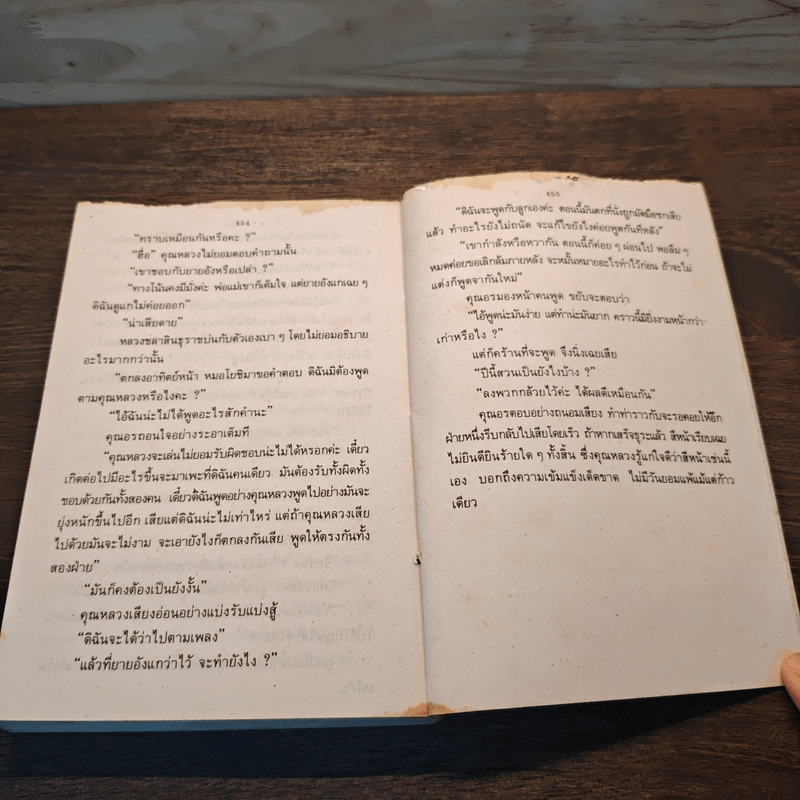 454
“ทราบเหมือนกันหรือคะ ?”
“ฮื่อ” คุณหลวงไม่ยอมตอบคำถามนั้น
“เขาชอบกับยายอังหรือเปล่า ?”
“ทางโน้นคงมีมั่งค่ะ พ่อแม่เขาก็เต็มใจ แต่ยายอังแกเฉย ๆ
ดิฉันดูแกไม่ค่อยออก”
“น่าเสียดาย”
หลวงชลาสินธุราชบ่นกับตัวเองเบา ๆ โดยไม่ยอมอธิบาย
อะไรมากกว่านั้น
“ตกลงอาทิตย์หน้า หมอโยชิมาขอคำตอบ ดิฉันมิต้องพูด
ตามคุณหลวงหรือไงคะ ?”
“ไอ้ฉันน่ะไม่ได้พูดอะไรสักคำนะ”
คุณอรถอนใจอย่างระอาเต็มที
“คุณหลวงจะเล่นไม่ยอมรับผิดชอบน่ะไม่ได้หรอกค่ะ เดี๋ยว
เกิดต่อไปมีอะไรขึ้นจะมาเพะที่ดิฉันคนเดียว มันต้องรับทั้งผิดทั้ง
ชอบด้วยกันทั้งสองคน เดี๋ยวดิฉันพูดอย่างคุณหลวงพูดไปอย่างมันจะ
ยุ่งหนักขึ้นไปอีก เสียแต่ดิฉันน่ะไม่เท่าไหร่ แต่ถ้าคุณหลวงเสีย
ไปด้วยมันจะไม่งาม จะเอายังไงก็ตกลงกันเสีย พูดให้ตรงกันทั้ง
สองฝ่าย”
“มันก็คงต้องเป็นยังงั้น”
คุณหลวงเสียงอ่อนอย่างแบ่งรับแบ่งสู้
“ดิฉันจะได้ว่าไปตามเพลง”
“แล้วที่ยายอังแกว่าไว้ จะทำยังไง ?”
455
“ดิฉันจะพูดกับลูกเองค่ะ ตอนนี้มันตกที่นั่งถูกมัดมือชกเสีย
แล้ว ทำอะไรยังไม่ถนัด จะแก้ไขยังไงค่อยพูดกันทีหลัง”
“เขากำลังหวือหวากัน ตอนนี้ก็ค่อย ๆ ผ่อนไป พอลืม ๆ
หมดค่อยขอเลิกล้มภายหลัง จะหมั้นหมายอะไรทำไว้ก่อน ถ้าจะไม่
แต่งก็พูดจากันใหม่”
คุณอรมองหน้าคนพูด ขยับจะตอบว่า
“ไอ้พูดน่ะมันง่าย แต่ทำน่ะมันยาก คราวนี้มิยิ่งงามหน้ากว่า
เก่าหรือไง ?”
แต่ก็คร้านที่จะพูด จึงนิ่งเฉยเสีย
“ปีนี้สวนเป็นยังไงบ้าง ?”
“ลงพวกกล้วยไว้ค่ะ ได้ผลดีเหมือนกัน”
คุณอรตอบอย่างถนอมเสียง ทำท่าราวกับจะรอคอยให้อีก
ฝ่ายหนึ่งรีบกลับไปเสียโดยเร็ว ถ้าหากเสร็จธุระแล้ว สีหน้าเรียบเฉย
ไม่ยินดียินร้ายใด ๆ ทั้งสิ้น ซึ่งคุณหลวงรู้แก่ใจดีว่าสีหน้าเช่นนี้
เอง บอกถึงความเข้มแข็งเด็ดขาด ไม่มีวันยอมแพ้แม้แต่ก้าว
เดียว